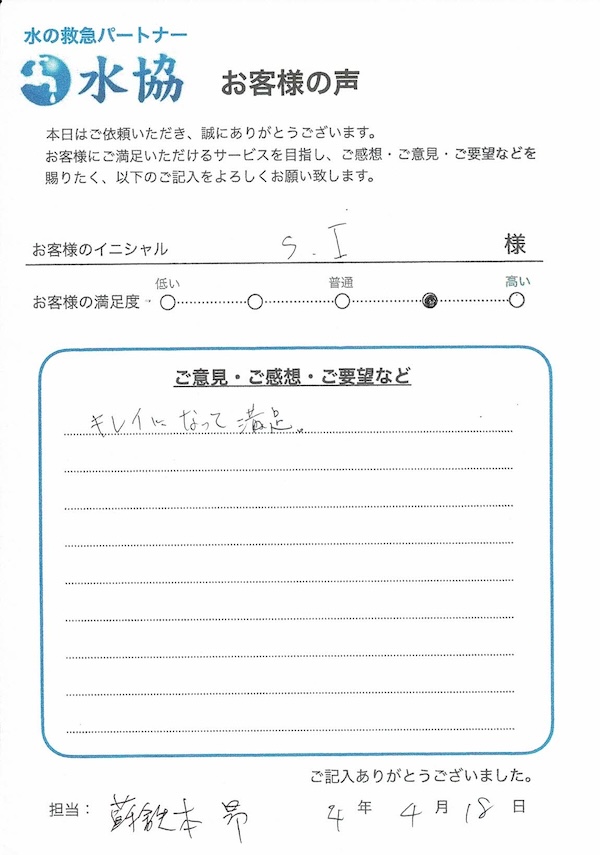 水の救急パートナー
水協 お客様の声
本日はご依頼いただき、誠にありがとうございます。
お客様にご満足いただけるサービスを目指し、ご感想・ご意見・ご要望などを
賜りたく、以下のご記入をよろしくお願い致します。
お客様のイニシャル S.I 様
低い 普通 高い
お客様の満足度
ご意見・ご感想・ご要望など
キレイになって満足。
ご記入ありがとうございました。
担当: 本 昂 4年 4月 18日